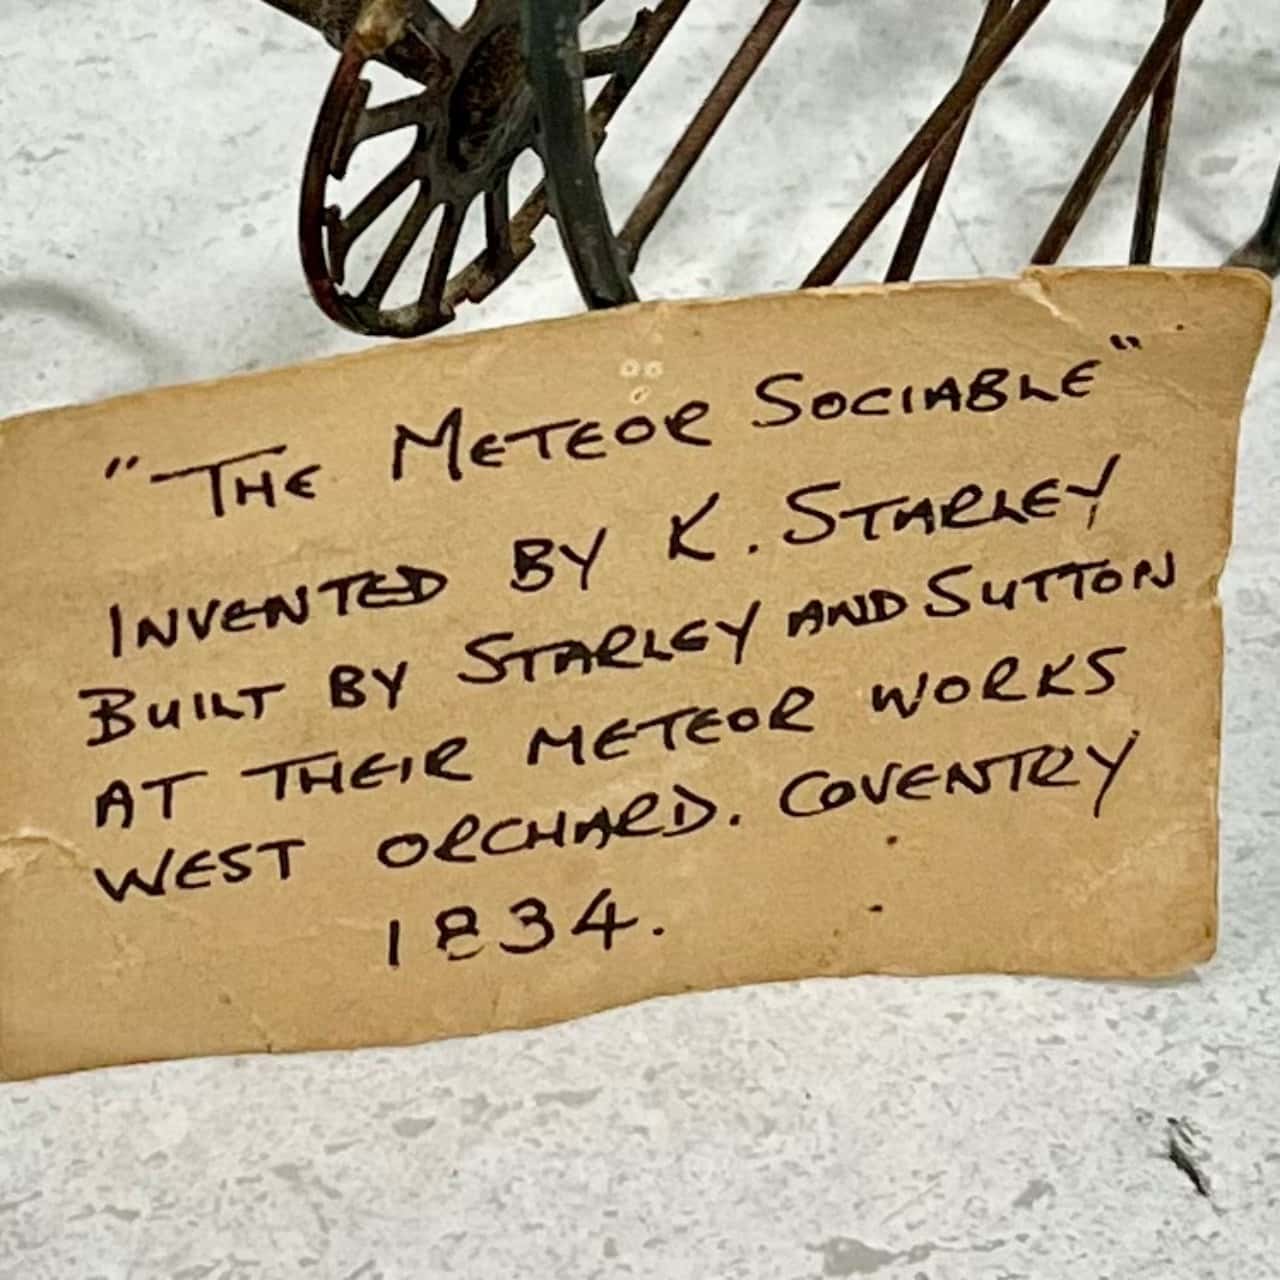 "THE METEOR SOCIABLE"
INVENTED BY K. STARLEY
BUILT BY STARLEY AND SUTTON
AT THEIR METEOR WORKS
WEST ORCHARD. COVENTRY
1834.